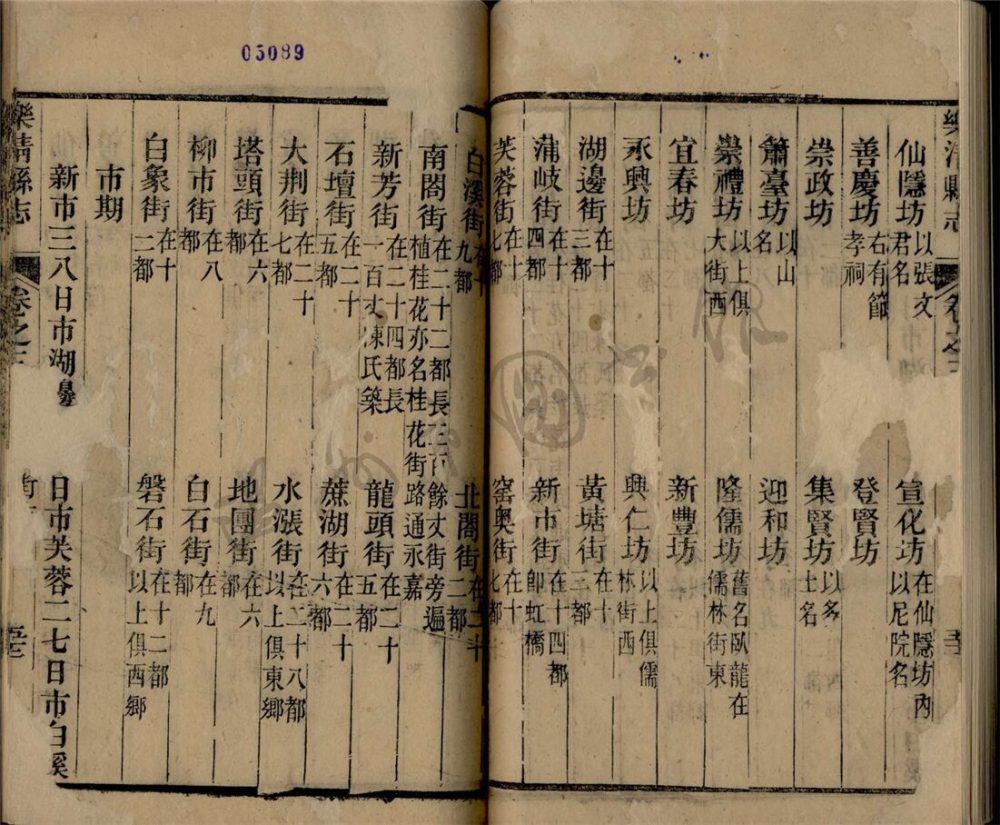 05089
樂清縣志
卷之三
仙隱坊 以張文君名
宣化坊 在仙隱坊內以尼院名
善慶坊 右有節孝祠
登賢坊
崇政坊
集賢坊 以多士名
簫臺坊 以山名
迎和坊
崇禮坊 以上俱大街西
隆儒坊 舊名臥龍在儒林街東
宜春坊
新豐坊
永興坊
興仁坊 以上俱儒林街西
湖邊街 在十三都
黃塘街 在十三都
蒲岐街 在十四都
新市街 在十四都卽虹橋
芙蓉街 在十七都
窑奥街 在十七都
白溪街 在十九都
北閤街 在二十二都
南閤街 在二十二都長三百餘丈街旁遍植桂花亦名桂花街路通永嘉
新芳街 在二十四都長一百丈陳氏築
龍頭街 在二十五都
石壇街 在二十五都
蔗湖街 在二十六都
大荆街 在二十七都
水漲街 在二十八都以上俱東鄉
塔頭街 在六都
地團街 在六都
柳市街 在八都
白石街 在九都
白象街 在十二都
磐石街 在十二都以上俱西鄉
市期
新市三八日市湖
日市芙蓉二七日市白溪
樂清縣志
卷之三